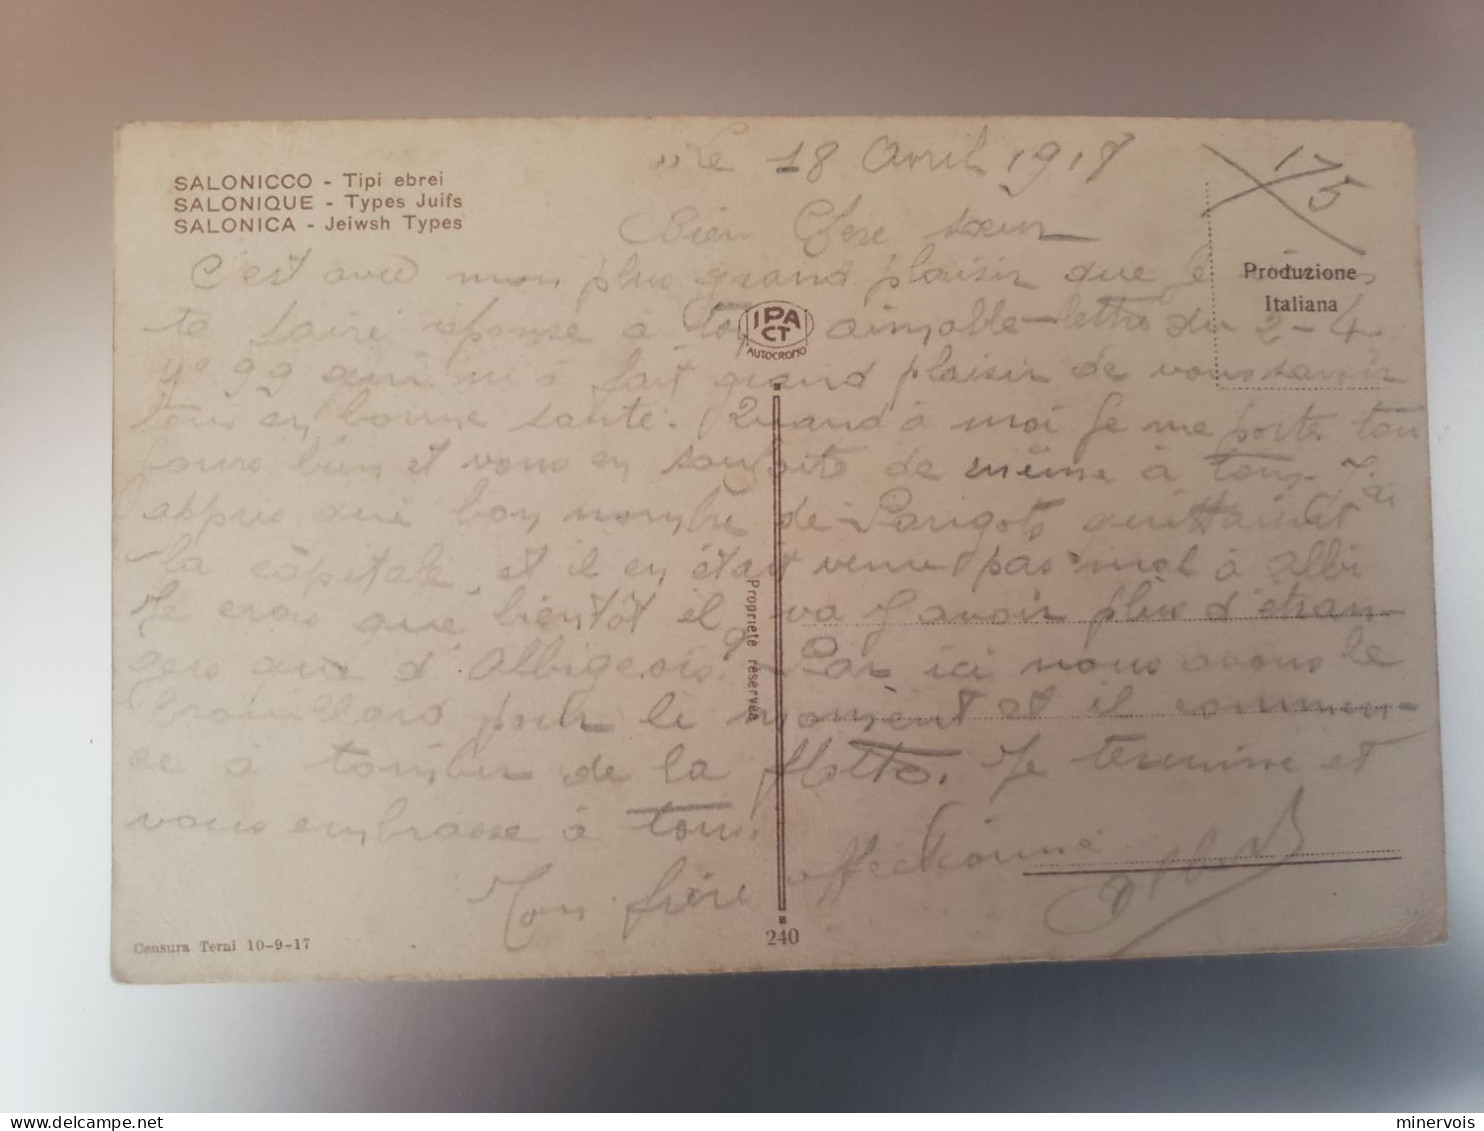 SALONICCO - Tipi ebrei
SALONIQUE - Types Juifs
SALONICA - Jeiwsh Types
Le 18 Avril 1918
175
Produzione
Italiana
Bien Chère sœur
C'est avec mon plus grand plaisir que je
te faire réponse à ton aimable lettre du 2-4
n° 99 qui m'a fait grand plaisir de vous savoir
tous en bonne santé. Quand à moi je me porte tou
jours bien et vous en souhaite de même à tous. J'ai
appris que bon nombre de Parigots quittaient
la capitale, et il en était venu pas mal à Albi
Je crois que bientôt il va y avoir plus d'étran-
gers que d'Albigeois. Par ici nous avons le
brouillard pour le moment et il commen-
ce à tomber de la flotte. Je termine et
vous embrasse à tous.
Ton frère affectionné
IPA
CT
AUTOCROMO
Propriété réservéa
240
Censura Terni 10-9-17
delcampe.net
minervois